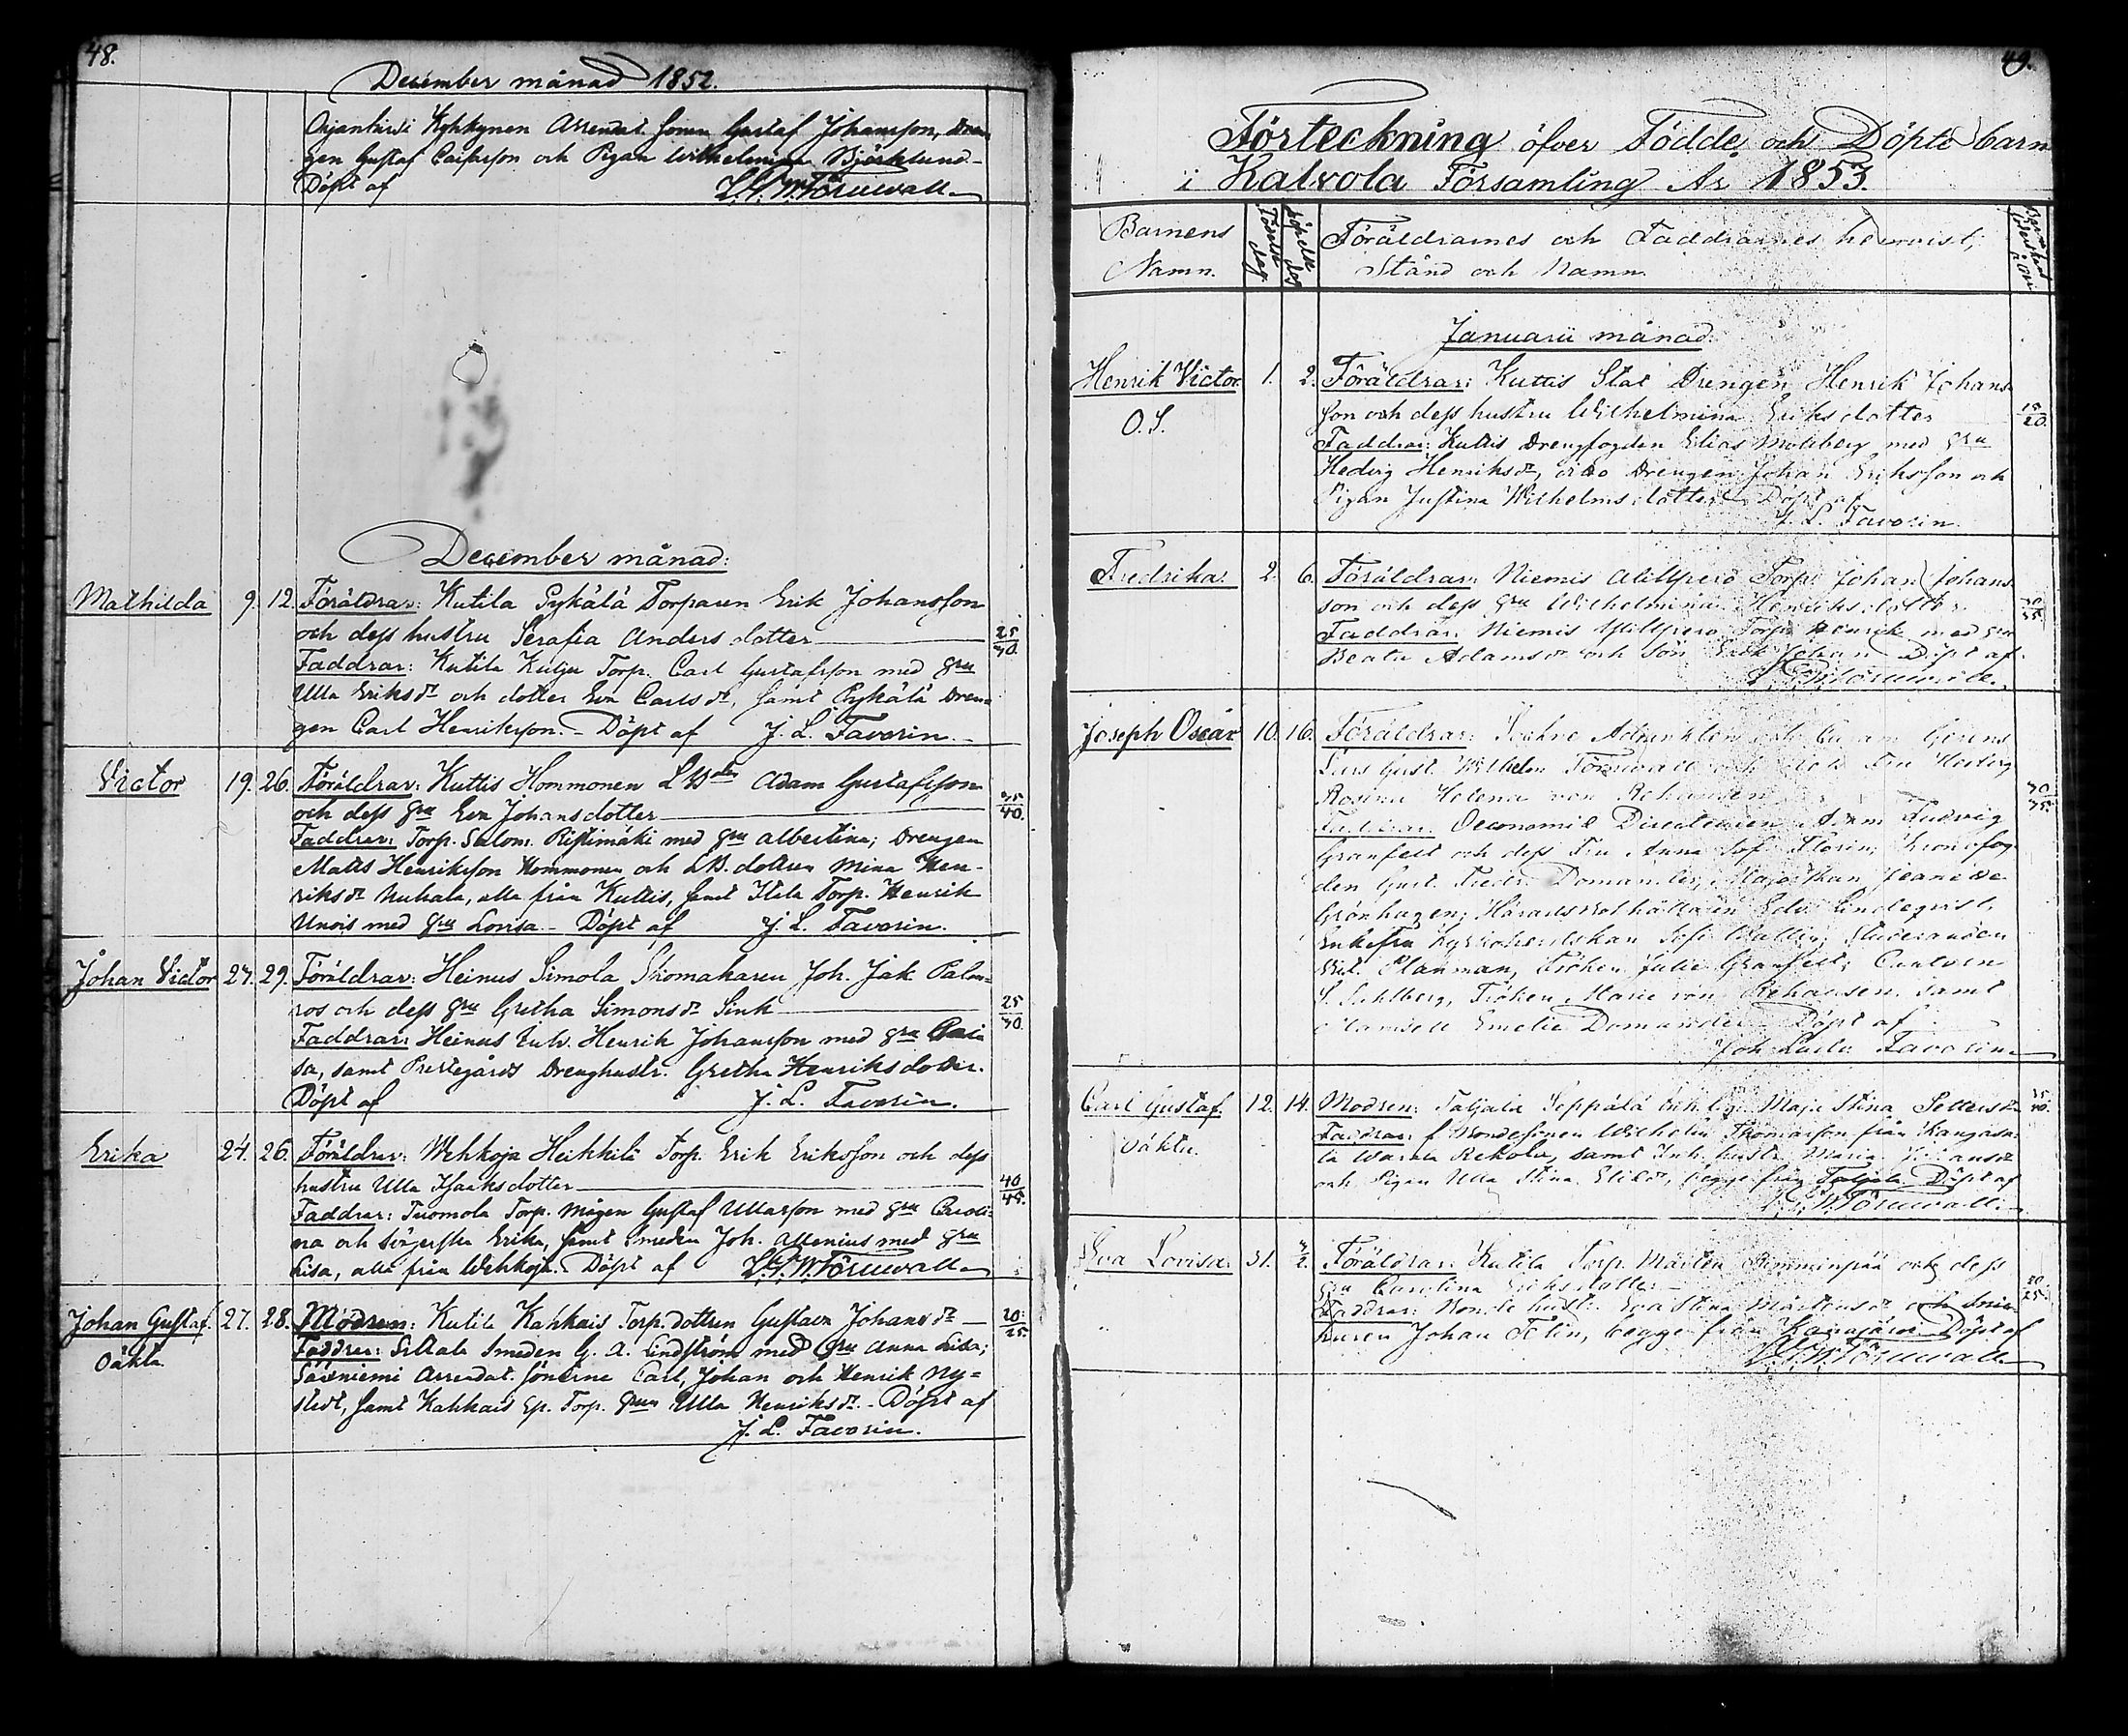 48.
December månad 1852.
Kyhkynen Arrendat. Sonen Gustaf Johansson, Dren
gen Gustaf och Pigan Wilhelmina Björklund
Döpt af L.G.W. Törnwall
December månad:
Mathilda 9. 12. Föräldrar: Kutila Pykälä Torparen Erik Johansson
och dess hustru Serafia Anders dotter 25/30.
Faddrar: Kutila Kulju Torp. Carl Gustafsson med hru
Ulla Eriksdr och dotter Eva Carlsdr, samt Pykälä Dren=
gen Carl Henriksson. Döpt af J. L. Favorin.
Victor 19. 26. Föräldrar: Kuttis Hommonen Adam Gustafsson
och dess hru Eva Johansdotter 35/40.
Faddrar: Torp. Salom. Ristimäki med hru Albertina; Drengen
Matts Henriksson Hommonen och dottren Mina Hen-
riksdr Nuhala, alla från Kuttis, samt Ilola Torp. Henrik
Unois med hru Lovisa. Döpt af J. L. Favorin.
Johan Victor 27. 29. Föräldrar: Heinus Simola Skomakaren Joh. Jak Palm-
ros och dess hru Gretha Simonsdr Sink 25/30.
Faddrar: Heinus Inh. Henrik Johansson med hru
sa, samt Prestegårds Drenghustr. Gretha Henriksdotter.
Döpt af J. L. Favorin.
Erika 24. 26. Föräldrar: Wehkoja Heikkilä Torp. Erik Eriksson och dess
hustru Ulla Isaksdotter 40/45.
Faddrar: Tuomola Torp. Mågen Gustaf Ullarson med hru Caroli=
na och Erika, samt Smeden Joh. Allenius med hru
Lisa, alla från Wehkoja. Döpt af L.G.W. Törnwall
Johan Gustaf. 27. 28. Modren: Kutila Kahkais Torp. dottren Gustava Johansdr 20/25.
Oäkta. Faddrar: Smeden G. A. Lindström med hru Anna Lisa;
Sääxniemi Arrendat. Sönerne Carl, Johan och Henrik Ny=
stedt, samt Kahkais Torp. Ulla Henriksdr. Döpt af
J. L. Favorin.
49.
Förteckning öfver Födde och Döpte barn
i Kalvola Församling År 1853.
Barnens Namn.
Födelse dag
Döpelse dag
Föräldrarnes och Faddrarnes hemvist,
Stånd och Namn.
Januarii månad.
Henrik Victor. 1. 2. Föräldrar: Kuttis Stat Drengen Henrik Johans
O.S. son och dess hustru Wilhelmina Eriksdotter 15/20.
Faddrar: Kuttis Drengfogden Elias Mollberg med hru
Hedvig Henriksdr, dito Drengen Johan Eriksson och
Pigan Justina Wilhelmsdotter. Döpt af
J. L. Favorin.
Fredrika. 2. 6. Föräldrar: Niemis Torp. Johan Johans
son och dess hru Wilhelmina Henriksdotter.
Faddrar: Niemis Torp. Henrik med hru
Beata Adamsdr och Son Erik Johan. Döpt af
Törnwall.
Joseph Oscar 10. 16. Föräldrar: Sockne Adjunkten och
Lars Gust. Wilhelm Törnwall och Fru Hedvig
Rosina Helena von Rehausen 30/35.
Faddrar: Oeconomie Directeuren Adam Ludvig
Granfelt och dess Fru Anna Sof. Florin; Kronofog
den Gust. Fredr. Domander,
Grönhagen; Häradshöfd Edv. Lindeqvist,
Enkefru Kyrkoherdskan Sofi Studeranden
Vict. Planman, Fröken Julie Granfelt;
S. Sahlberg, Fröken Marie von Rehausen samt
Mamsell Emelie Domander. Döpt af
Joh. Ludv. Favorin
Carl Gustaf. 12. 14. Modren: Taljala Seppälä Maja Stina Pettersdr 35/40.
Oäkta. Faddrar: Wilhelm Thomasson från Kangasa
la Rekola, samt Inh. hustr. Maria
och Pigan Ulla Stina begge från Taljala. Döpt af
L.G.W. Törnwall.
Eva Lovisa. 31. 3/2. Föräldrar: Kutila Torp. Mårten och dess
hru Carolina Eriksdotter 20/25.
Faddrar: Eva Stina Mårtensdr och
Johan Felin, begge från Döpt af
L.G.W. Törnwall